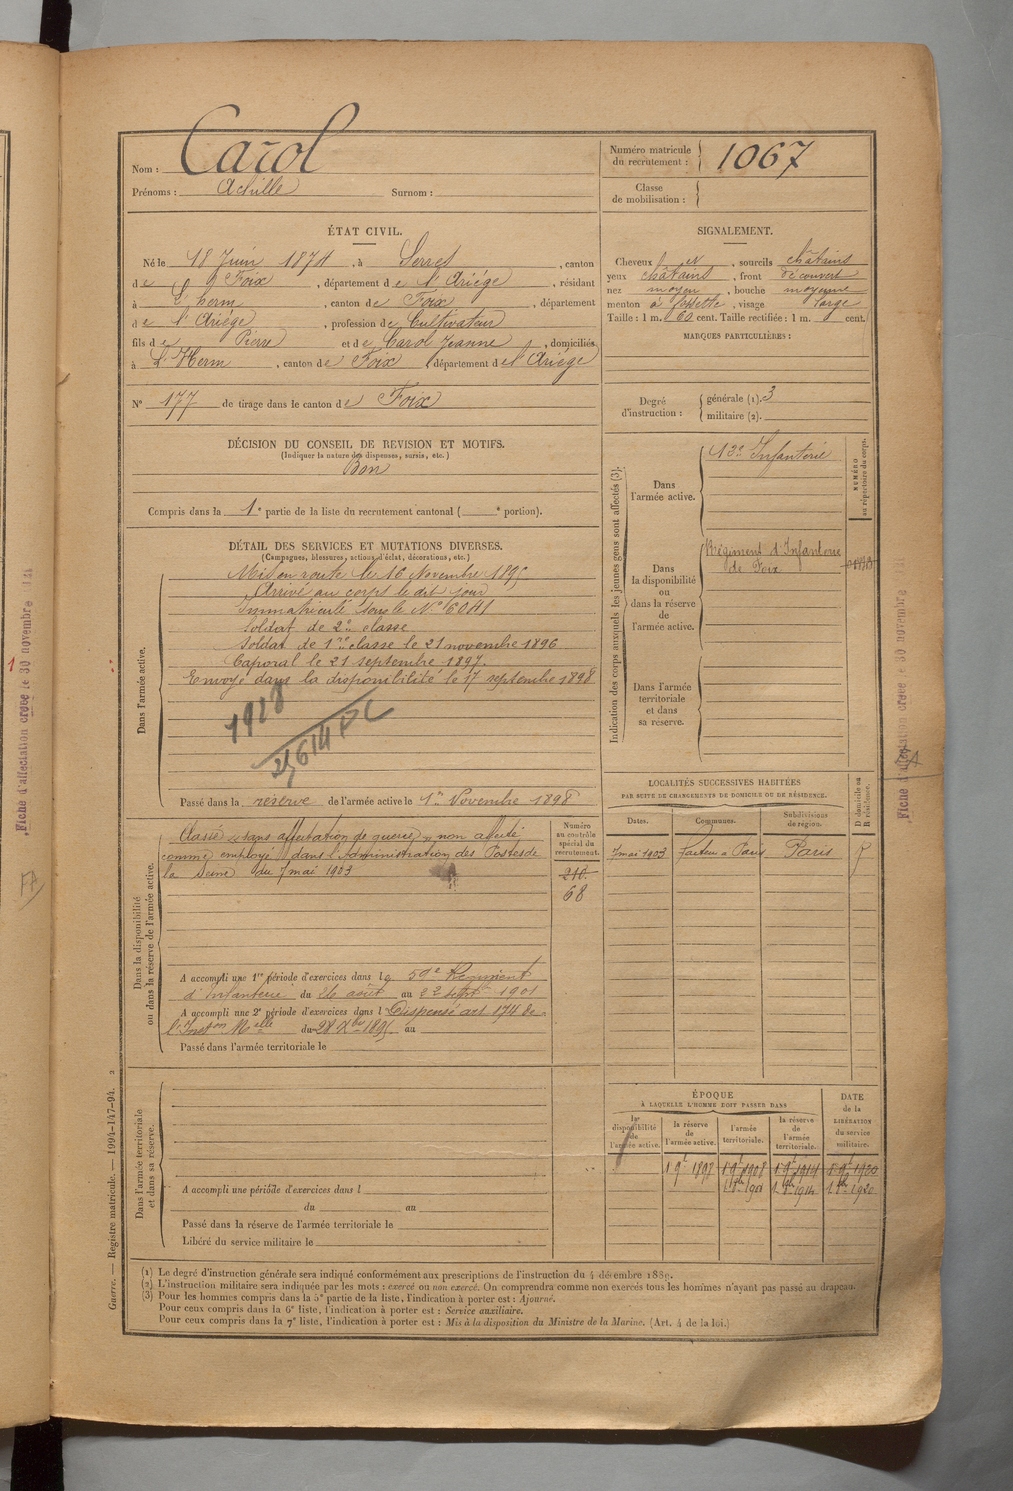 Nom : Carol
Prénoms : Achille Surnom :
Numéro matricule du recrutement : 1067
Classe de mobilisation :
ÉTAT CIVIL.
Né le 18 Juin 1874, à Serres, canton
de Foix, département de l'Ariége, résidant
à L'herm, canton de Foix, département
de l'Ariége, profession de Cultivateur
fils de Pierre et de Carol Jeanne, domiciliés
à L'Herm, canton de Foix, département de l'Ariége
N° 177 de tirage dans le canton de Foix
SIGNALEMENT.
Cheveux, sourcils châtains
yeux châtains, front découvert
nez moyen, bouche moyenne
menton à fossette, visage large
Taille : 1 m. 60 cent. Taille rectifiée : 1 m. cent.
MARQUES PARTICULIÈRES :
Degré d'instruction : générale (1). 3
militaire (2).
DÉCISION DU CONSEIL DE REVISION ET MOTIFS.
(Indiquer la nature des dispenses, sursis, etc.)
Bon
Compris dans la 1e partie de la liste du recrutement cantonal ( e portion).
Indication des corps auxquels les jeunes gens sont affectés (3).
NUMÉRO au répertoire du corps.
Dans l'armée active.
Infanterie
Dans la disponibilité ou dans la réserve de l'armée active.
Régiment d'Infanterie
de Foix
Dans l'armée territoriale et dans sa réserve.
DÉTAIL DES SERVICES ET MUTATIONS DIVERSES.
(Campagnes, blessures, actions d'éclat, décorations, etc.)
Dans l'armée active.
Mis en route le 16 Novembre 1895
Arrivé au corps le dit jour
Immatriculé sous le N° 6041
Soldat de 2e classe
Soldat de 1re classe le 21 novembre 1896
Caporal le 21 septembre 1897.
Envoyé dans la disponibilité le 17 septembre 1898
1918
Passé dans la réserve de l'armée active le 1er Novembre 1898
Dans la disponibilité ou dans la réserve de l'armée active.
Numéro au contrôle spécial du recrutement.
210
68
Classé "sans affectation de guerre" non affecté
comme employé dans l'Administration des Postes de
la Seine du 7 mai 1903
A accompli une 1re période d'exercices dans le 59e Régiment
d'Infanterie du 26 août au 22 septbre 1901
A accompli une 2e période d'exercices dans l Dispensé art 174 de
l'Inston Melle du 28 Xbre 1895 au
Passé dans l'armée territoriale le
LOCALITÉS SUCCESSIVES HABITÉES
PAR SUITE DE CHANGEMENTS DE DOMICILE OU DE RÉSIDENCE.
Dates. Communes. Subdivisions de région. D domicile ou R résidence.
7 mai 1903 facteur à Paris Paris R
Dans l'armée territoriale et dans sa réserve.
A accompli une période d'exercices dans l
du au
Passé dans la réserve de l'armée territoriale le
Libéré du service militaire le
ÉPOQUE
À LAQUELLE L'HOMME DOIT PASSER DANS
la disponibilité de l'armée active. la réserve de l'armée active. l'armée territoriale. la réserve de l'armée territoriale.
DATE de la LIBÉRATION du service militaire.
(1) Le degré d'instruction générale sera indiqué conformément aux prescriptions de l'instruction du 4 décembre 1889.
(2) L'instruction militaire sera indiquée par les mots : exercé ou non exercé. On comprendra comme non exercés tous les hommes n'ayant pas passé au drapeau.
(3) Pour les hommes compris dans la 5e partie de la liste, l'indication à porter est : Ajourné.
Pour ceux compris dans la 6e liste, l'indication à porter est : Service auxiliaire.
Pour ceux compris dans la 7e liste, l'indication à porter est : Mis à la disposition du Ministre de la Marine. (Art. 4 de la loi.)
Guerre. — Registre matricule. — 1994-147-94. 2
Fiche d'affectation créée le 30 novembre
Fiche d'affectation créée le 30 novembre
FA